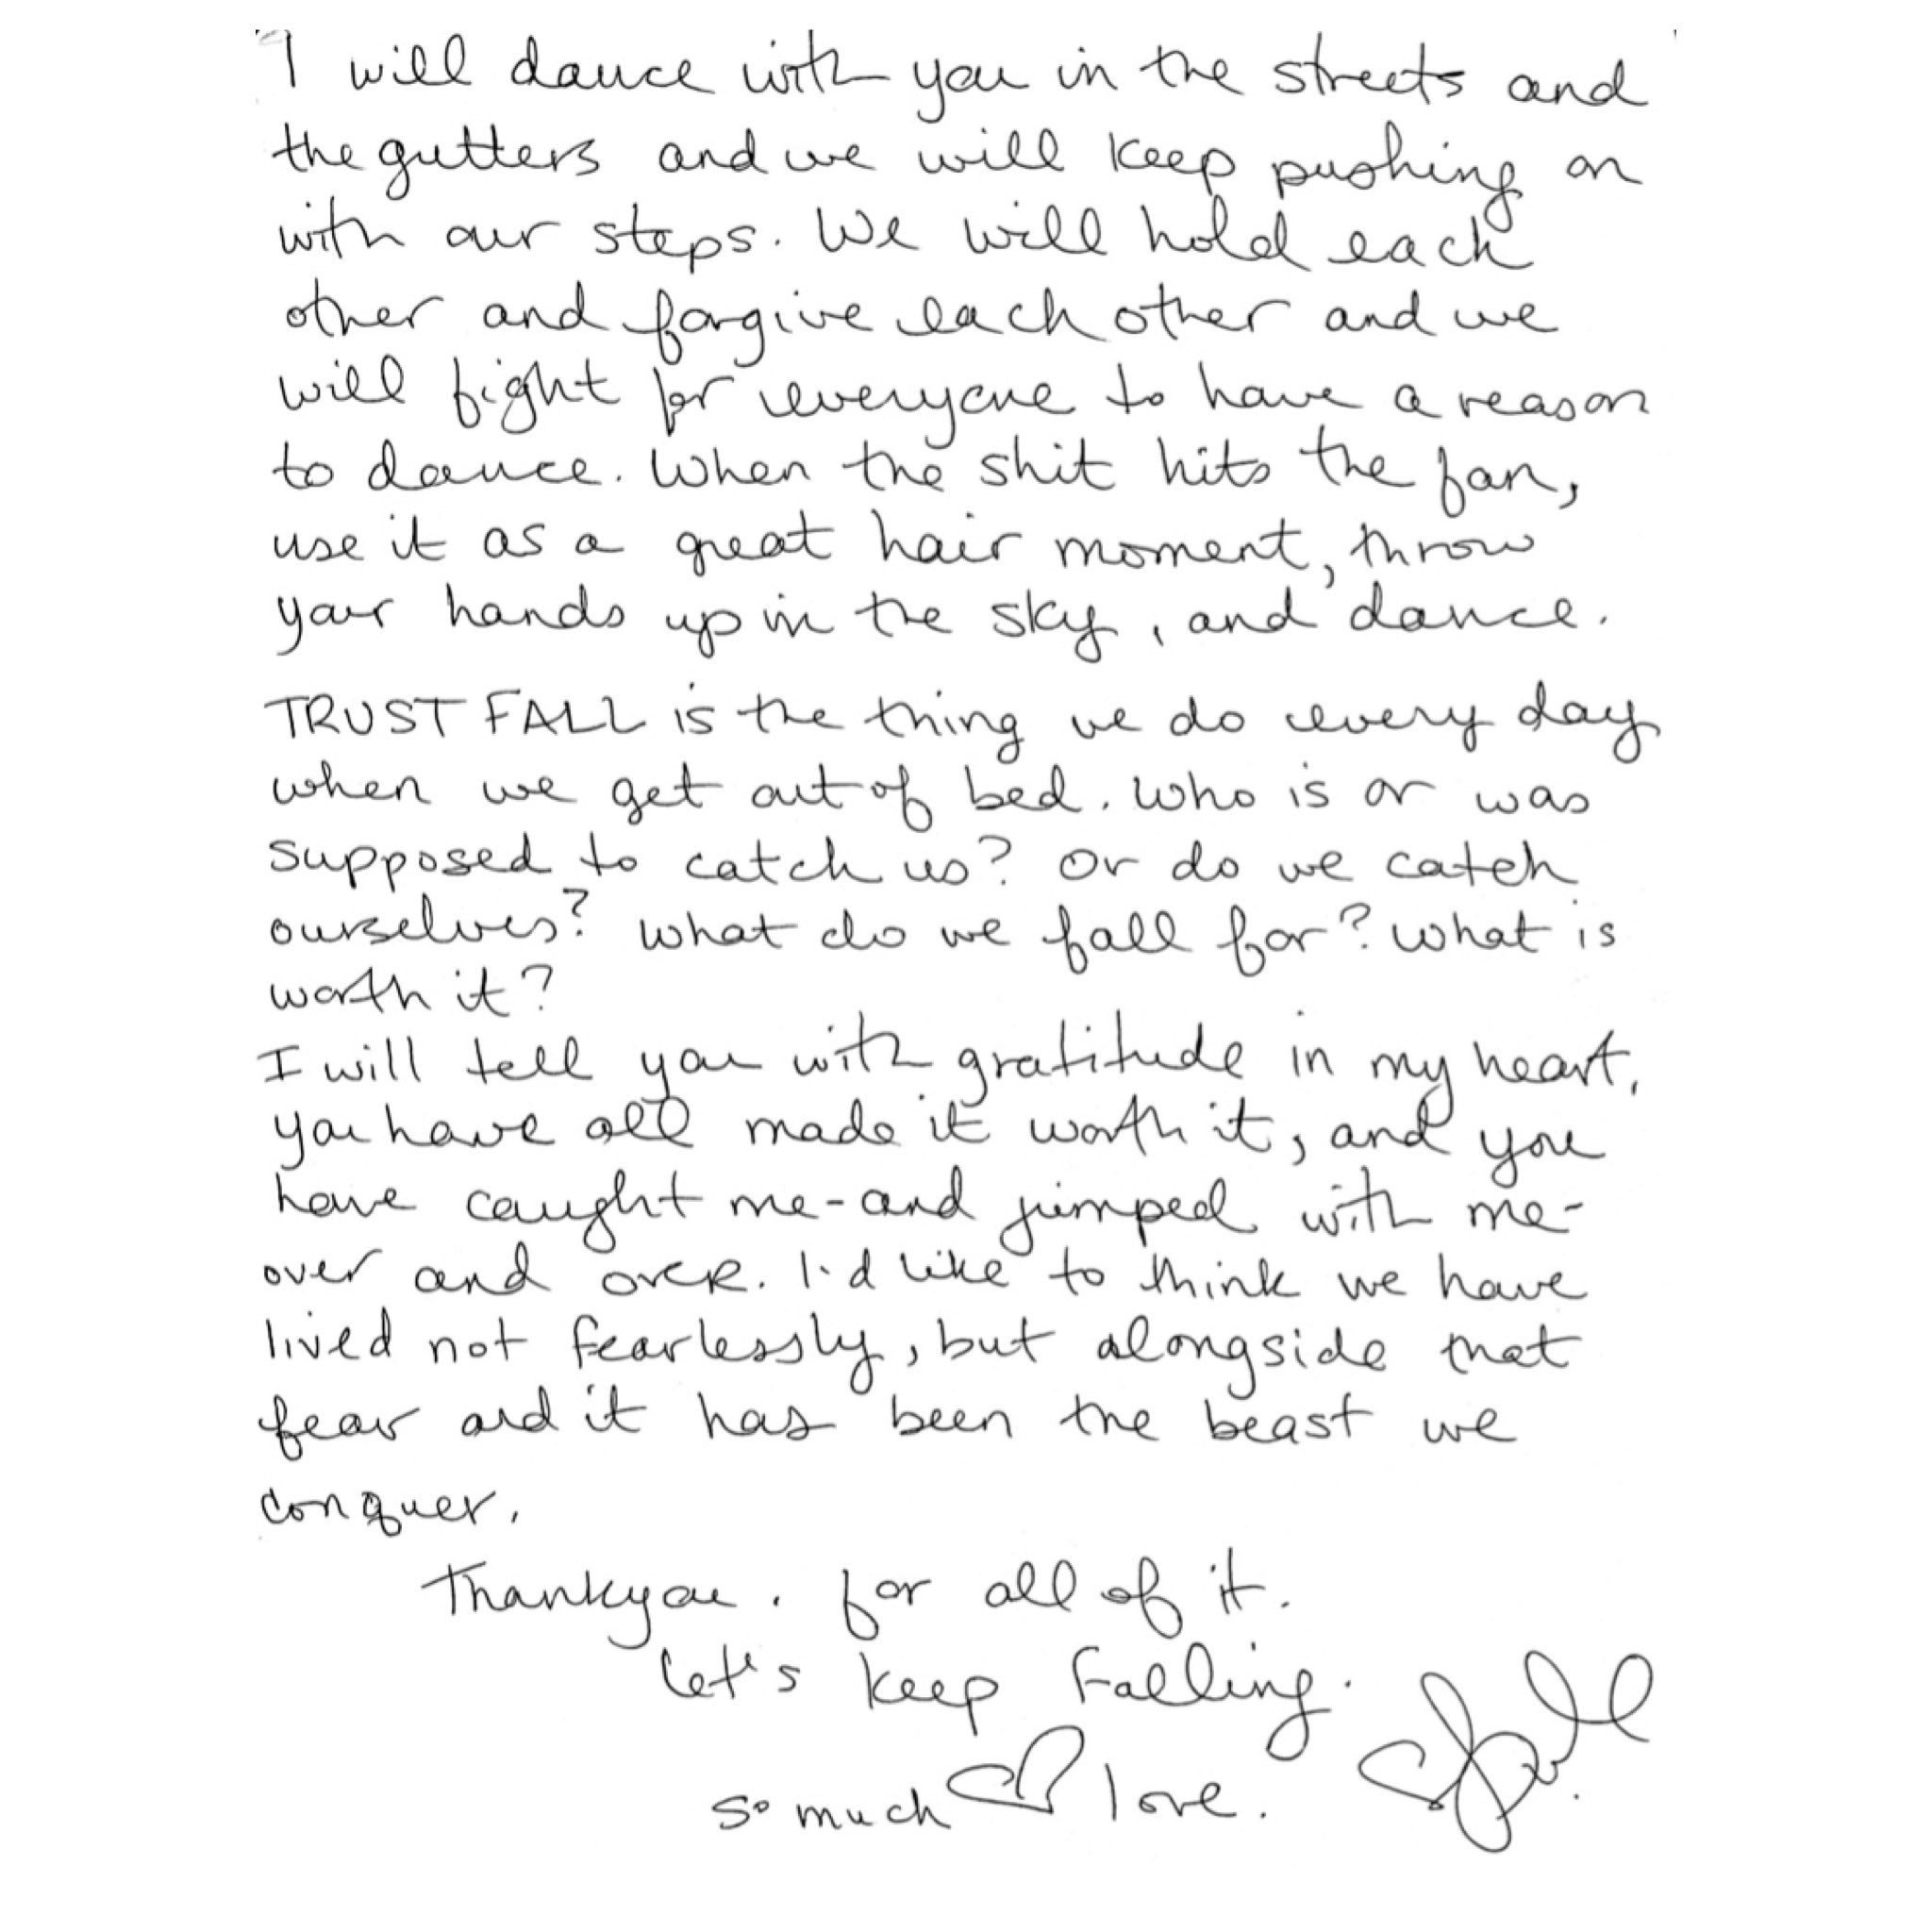 I will dance with you in the streets and
the gutters and we will keep pushing on
with our steps. We will hold each
other and forgive each other and we
will fight for everyone to have a reason
to dance. When the shit hits the fan,
use it as a great hair moment, throw
your hands up in the sky, and dance.
TRUSTFALL is the thing we do every day
when we get out of bed. Who is or was
supposed to catch us? Or do we catch
ourselves? What do we fall for? What is
worth it?
I will tell you with gratitude in my heart,
you have all made it worth it, and you
have caught me-and jumped with me-
over and over. I'd like to think we have
lived not fearlessly, but alongside that
fear and it has been the beast we
conquer.
Thankyou. for all of it.
Let's keep Falling.
so much love.